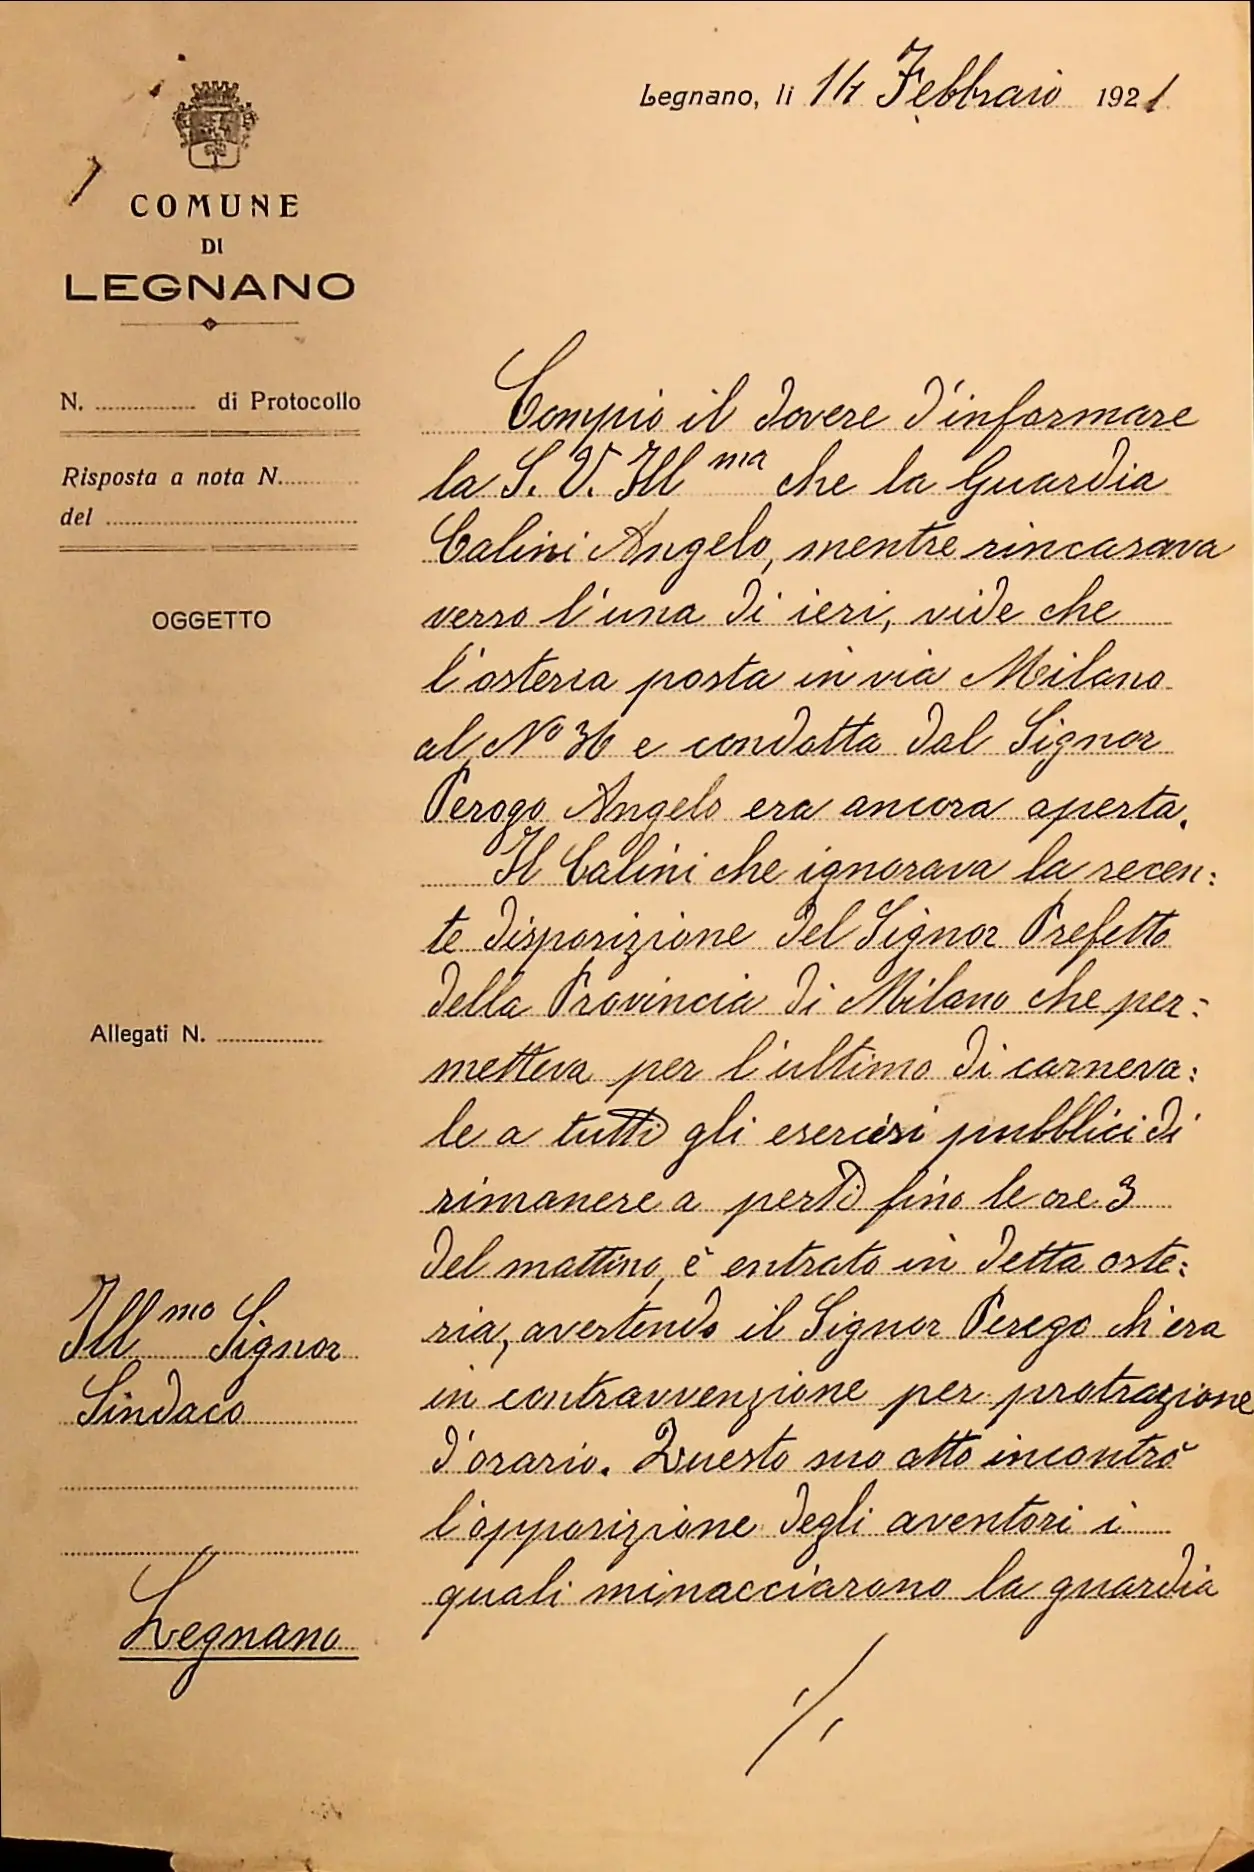 Legnano, li 14 Febbraio 1921
COMUNE
DI
LEGNANO
N. .............. di Protocollo
Risposta a nota N...........
del ....................................
OGGETTO
Allegati N. ...............
Ill mo Signor
Sindaco
Legnano
Compio il dovere d'informare
la S. V. Ill ma che la Guardia
Calini Angelo, mentre rincasava
verso l'una di ieri, vide che
l'osteria posta in via Milano
al No 36 e condotta dal Signor
Perego Angelo era ancora aperta.
Il Calini che ignorava la recen:
te disposizione del Signor Prefetto
della Provincia di Milano che per:
metteva per l'ultimo di carneva:
le a tutti gli esercisi pubblici di
rimanere a perti fino le ore 3
del mattino, è entrato in detta oste:
ria, avertendo il Signor Perego ch'era
in contravvenzione per protrazione
d'orario. Questo suo atto incontrò
l'opposizione degli aventori i
quali minacciarono la guardia
./.